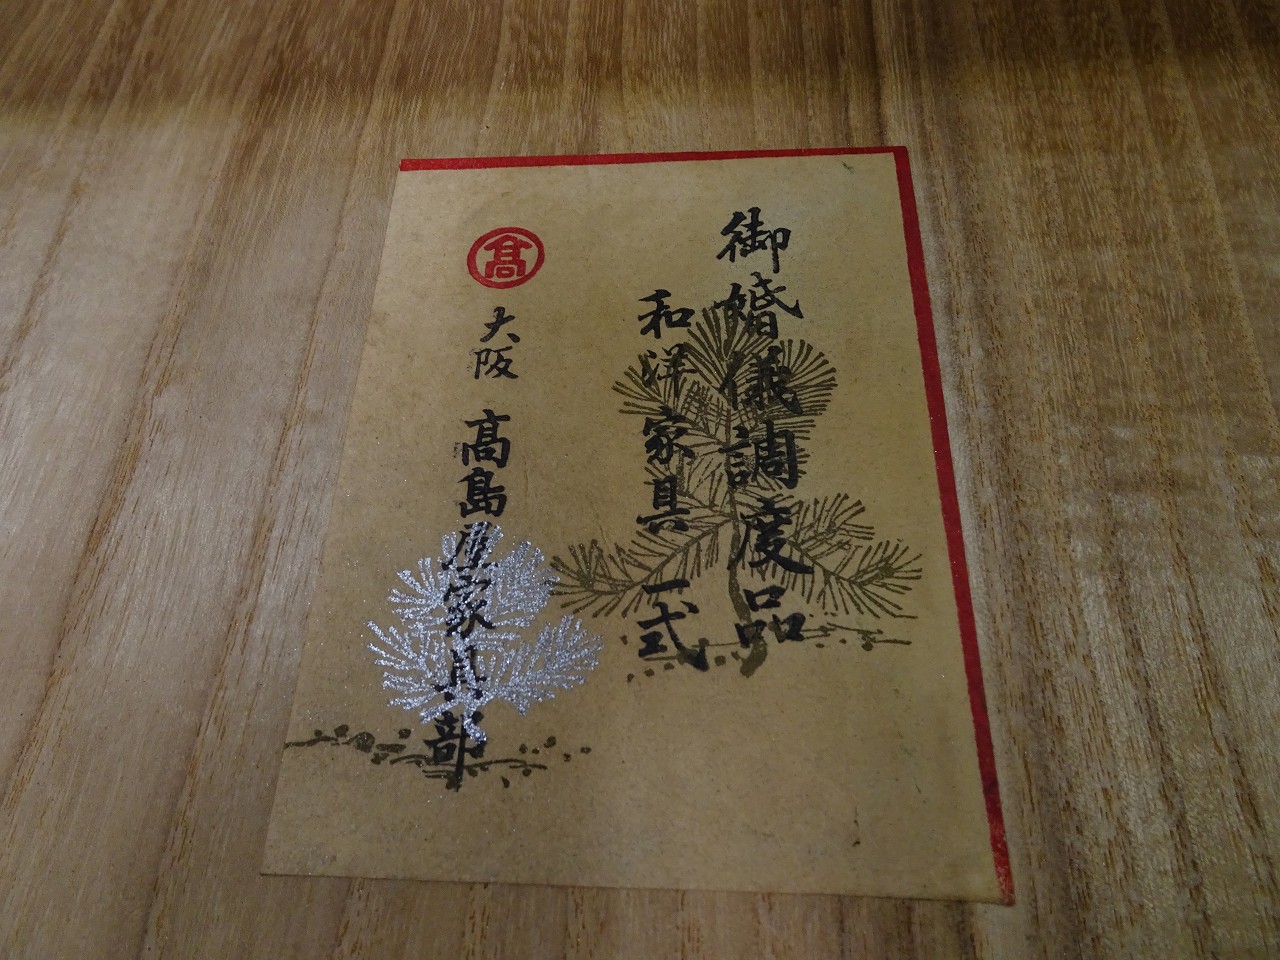 御婚儀調度品
和洋家具一式
髙
大阪 髙島屋家具部